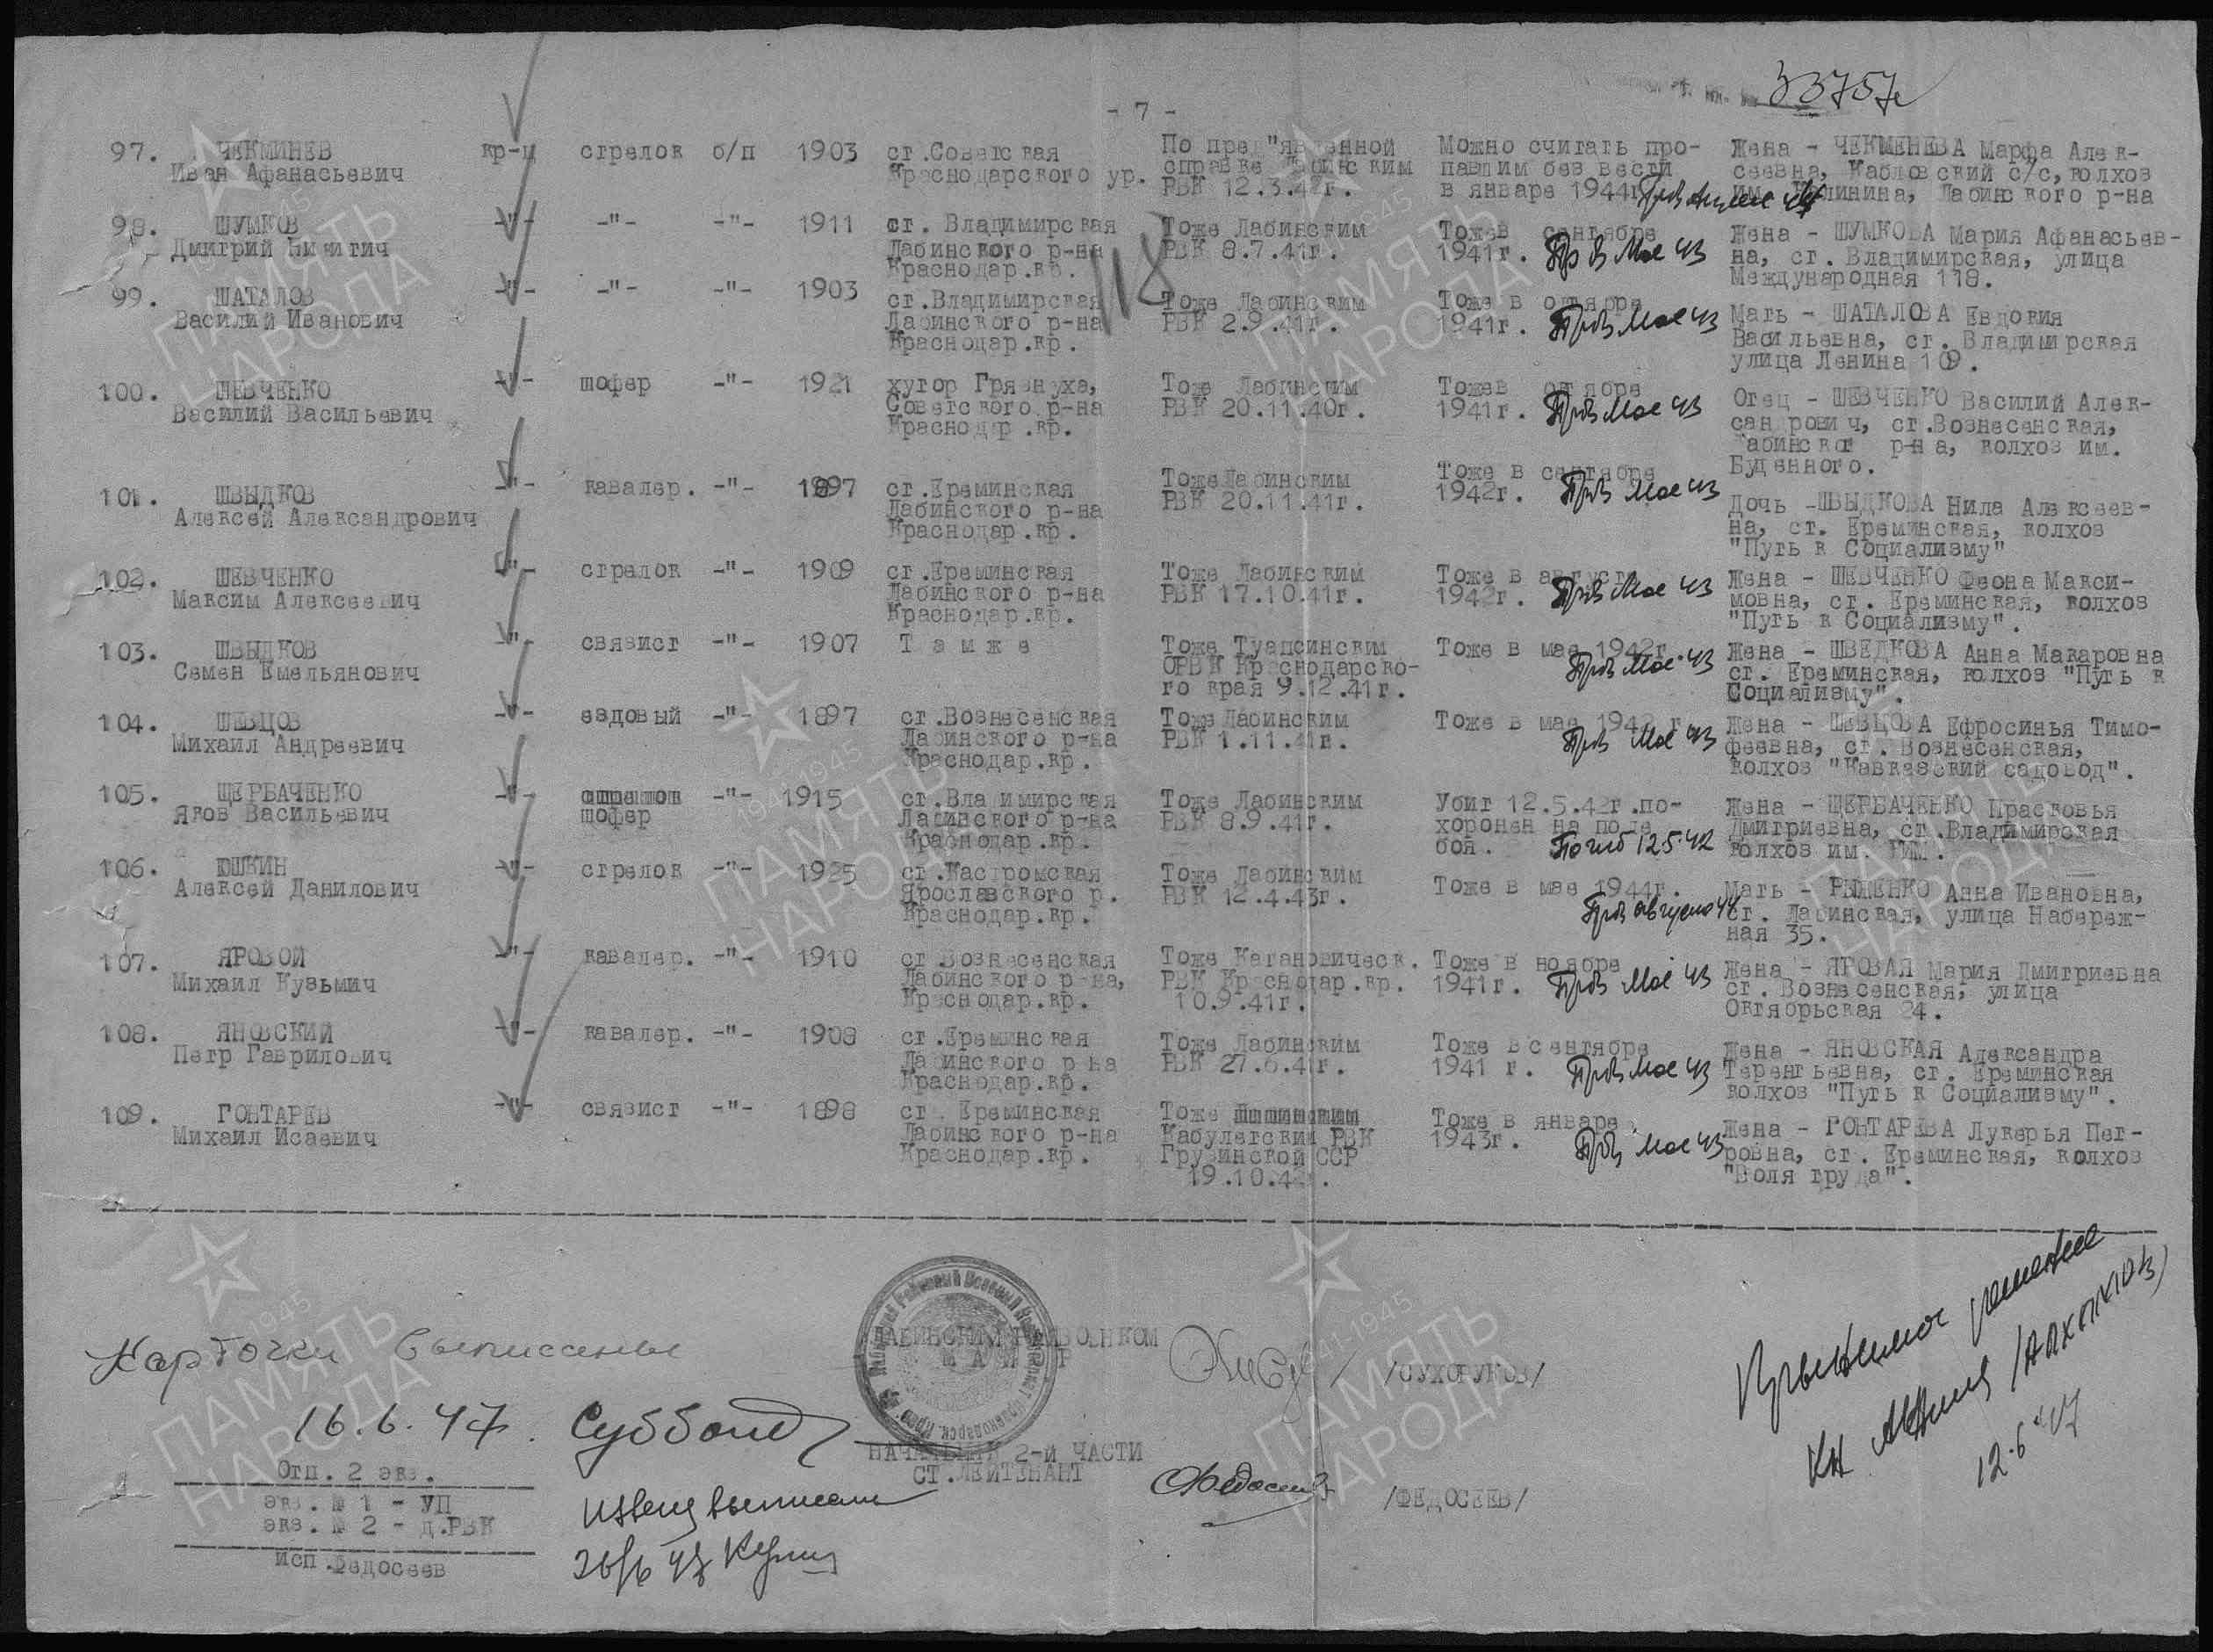 33757
- 7 -
97. ЧЕКМИНЕВ кр-ц стрелок б/п 1903 ст.Советская По пред"явленной Можно считать про- Жена - ЧЕКМЕНЕВА Марфа Алек-
Иван Афанасьевич Краснодарского ур. справке Лабинским павшим без вести сеевна, Каблов ский с/с, колхоз
РВК 12.3.42г. в январе 1944г. им. Калинина, Лабинского р-на
98. ШУМКОВ -"- -"- -"- 1911 ст. Владимирская Тоже Лабинским Тожев сентябре Жена - ШУМКОВА Мария Афанасьев-
Дмитрий Лабинского р-на РВК 8.7.41г. 1941г. Пр в Мае 43 на, ст. Владимирская, улица
Краснодар.кр. Международная 118.
118
99. ШАТАЛОВ -"- -"- -"- 1903 ст.Владимирская Тоже Лабинским Тоже в октябре Мать - ШАТАЛОВА Евдокия
Василий Иванович Лабинского р-на РВК 2.9.41г. 1941г. Прв Мае 43 Васильевна, ст. Владимирская
Краснодар.кр. улица Ленина 109.
100. ШЕВЧЕНКО -"- шофер -"- 1921 хутор Грязнуха, Тоже Лабинским Тожев октябре Отец - ШЕВЧЕНКО Василий Алек-
Василий Васильевич Советского р-на РВК 20.11.40г. 1941г. Прв Мае 43 сандрович, ст.Вознесенская,
Краснодар.кр. Лабинског р-на, колхоз им.
Буденного.
101. ШВЫДКОВ -"- кавалер. -"- 1897 ст.Ереминская ТожеЛабинским Тоже в сентябре Дочь -ШВЫДКОВА Нила Алексеев-
Алексей Александрович Лабинского р-на РВК 20.11.41г. 1942г. Прв Мае 43 на, ст. Ереминская, колхоз
Краснодар.кр. "Путь к Социализму"
102. ШЕВЧЕНКО -"- стрелок -"- 1909 ст.Ереминская Тоже Лабинским Тоже в августе Жена - ШЕВЧЕНКО Феона Макси-
Максим Алексеевич Лабинского р-на РВК 17.10.41г. 1942г. Прв Мае 43 мовна, ст. Ереминская, колхоз
Краснодар.кр. "Путь к Социализму".
103. ШВЫДКОВ -"- связист -"- 1907 Т а м ж е Тоже Туапсинским Тоже в мае 1942г. Жена - ШВЕДКОВА Анна Макаровна
Семен Емельянович ОРВК Краснодарско- Прв Мае 43 ст. Ереминская, колхоз "Путь к
го края 9.12.41г. Социализму".
104. ШЕВЦОВ -"- ездовый -"- 1897 ст.Вознесенская Тоже Лабинским Тоже в мае 1942 г. Жена - ШЕВЦОВА Ефросинья Тимо-
Михаил Андреевич Лабинского р-на РВК 1.11.41г. Прв Мае 43 феевна, ст. Вознесенская,
Краснодар.кр. колхоз "Кавказский садовод".
105. ЩЕРБАЧЕНКО -"- -"- 1915 ст.Владимирская Тоже Лабинским Убит 12.5.42г.по- Жена - ЩЕРБАЧЕНКО Прасковья
Яков Васильевич шофер Лабинского р-на РВК 8.9.41г. хоронен на поле Дмитриевна, ст.Владимирская
Краснодар.кр. боя. Погиб 12.5.42 колхоз им. КИМ.
106. ЮШКИН -"- стрелок -"- 1925 ст.Кастромская Тоже Лабинским Тоже в мае 1944г. Мать - РЫЖЕНКО Анна Ивановна,
Алексей Данилович Ярославского р. РВК 12.4.43г. Прв августе 44 ст. Лабинская, улица Набереж-
Краснодар.кр. ная 35.
107. ЯРОВОЙ -"- кавалер. -"- 1910 ст Вознесенская Тоже Кагановическ. Тоже в ноябре Жена - ЯРОВАЯ Мария Дмитриевна
Михаил Кузьмич Лабинского р-на, РВК Краснодар.кр. 1941г. Прв Мае 43 ст. Вознесенская, улица
Краснодар.кр. 10.9.41г. Октябрьская 24.
108. ЯНОВСКИЙ -"- кавалер. -"- 1908 ст.Ереминская Тоже Лабинским Тоже в сентябре Жена - ЯНОВСКАЯ Александра
Петр Гаврилович Лабинского р-на РВК 27.6.41г. 1941 г. Прв Мае 43 Терентьевна, ст. Ереминская
Краснодар.кр. колхоз "Путь к Социализму".
109. ГОНТАРЕВ -"- связист -"- 1898 ст. Ереминская Тоже Тоже в январе Жена - ГОНТАРЕВА Лукерья Пет-
Михаил Исаевич Лабинского р-на Кабулетский РВК 1943г. Прв Мае 43 ровна, ст. Ереминская, колхоз
Краснодар.кр. Грузинской ССР "Воля труда".
19.10.42г.
Карточки выписаны
16.6.47. Субботд
ЛАБИНСКИЙ РАЙВОЕНКОМ
МАЙОР /СУХОРУКОВ/
НАЧАЛЬНИК 2-й ЧАСТИ
СТ.ЛЕЙТЕНАНТ /ФЕДОСЕЕВ/
Отп. 2 экз.
экз. № 1 - УП
экз. № 2 - д.РВК
исп.Федосеев
извещ выписаны
26/6 47
12.6.47
ПАМЯТЬ
НАРОДА
1941-1945